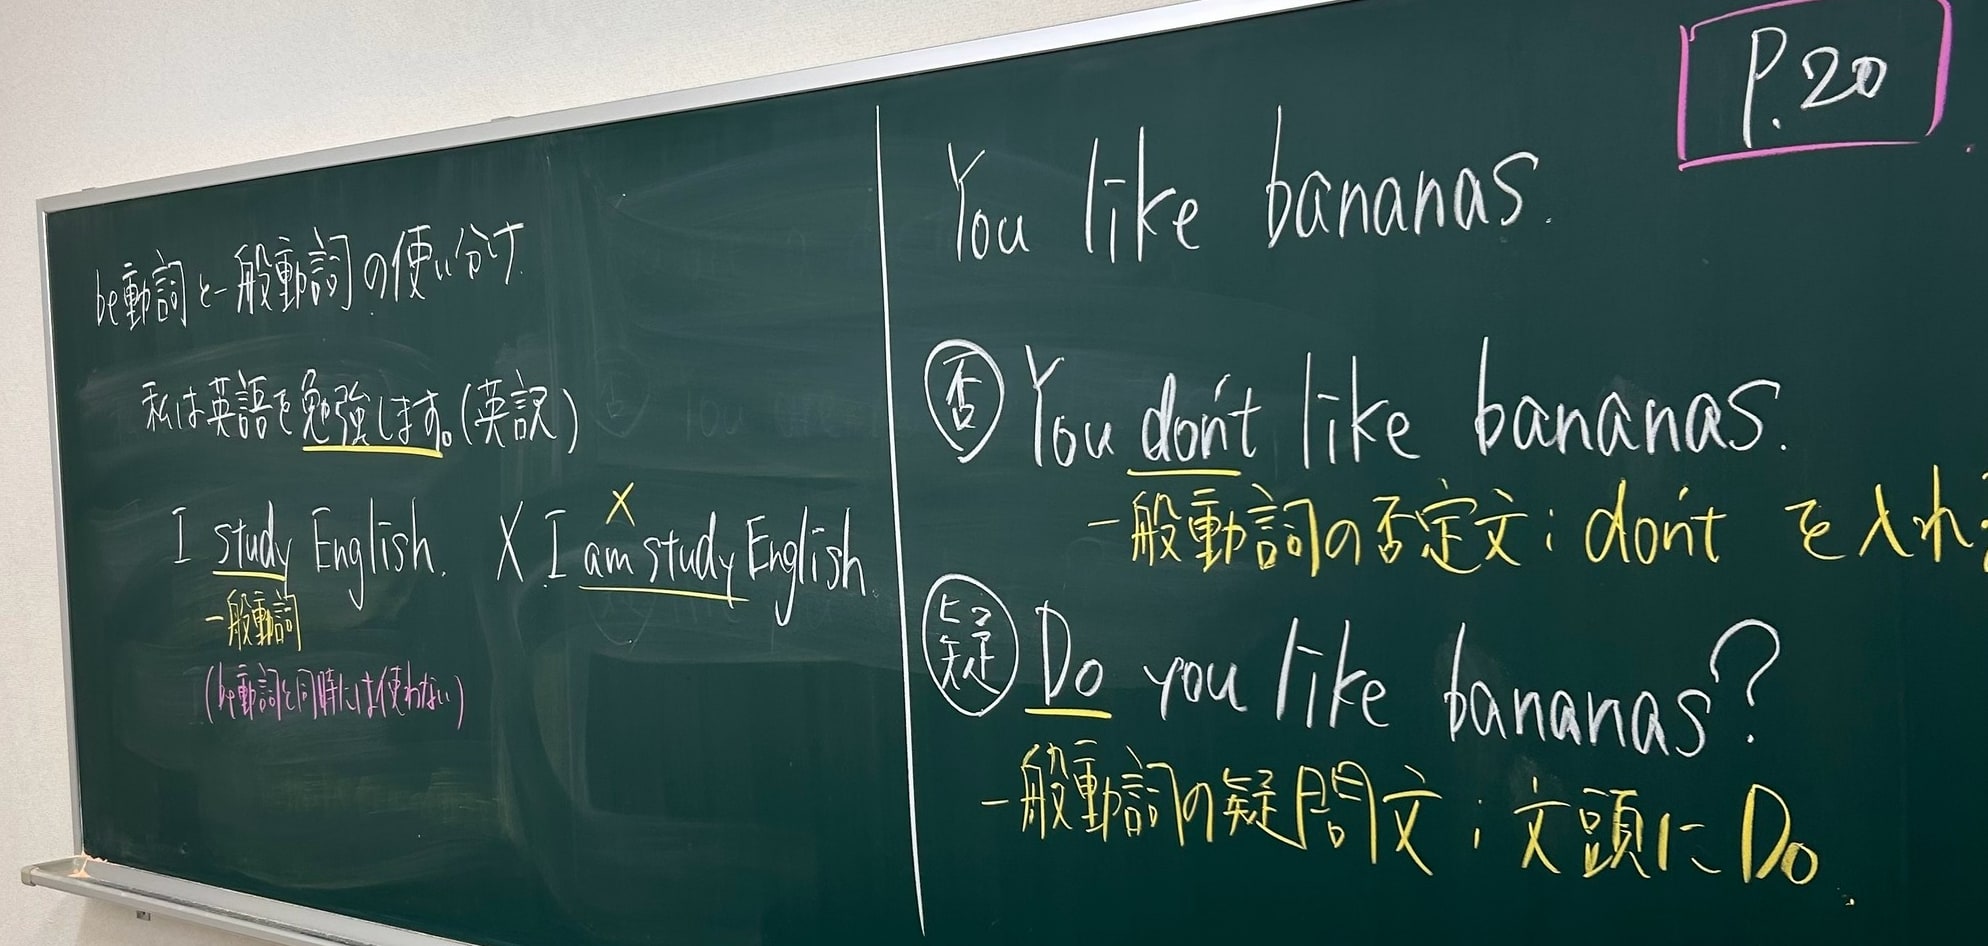 be動詞と一般動詞の使い分け
私は英語を勉強します。(英訳)
I study English.
一般動詞
(be動詞と同時には使わない)
X
X I am study English.
P.20
You like bananas.
否 You don't like bananas.
一般動詞の否定文; don't を入れ
疑 Do you like bananas?
一般動詞の疑問文; 文頭に Do